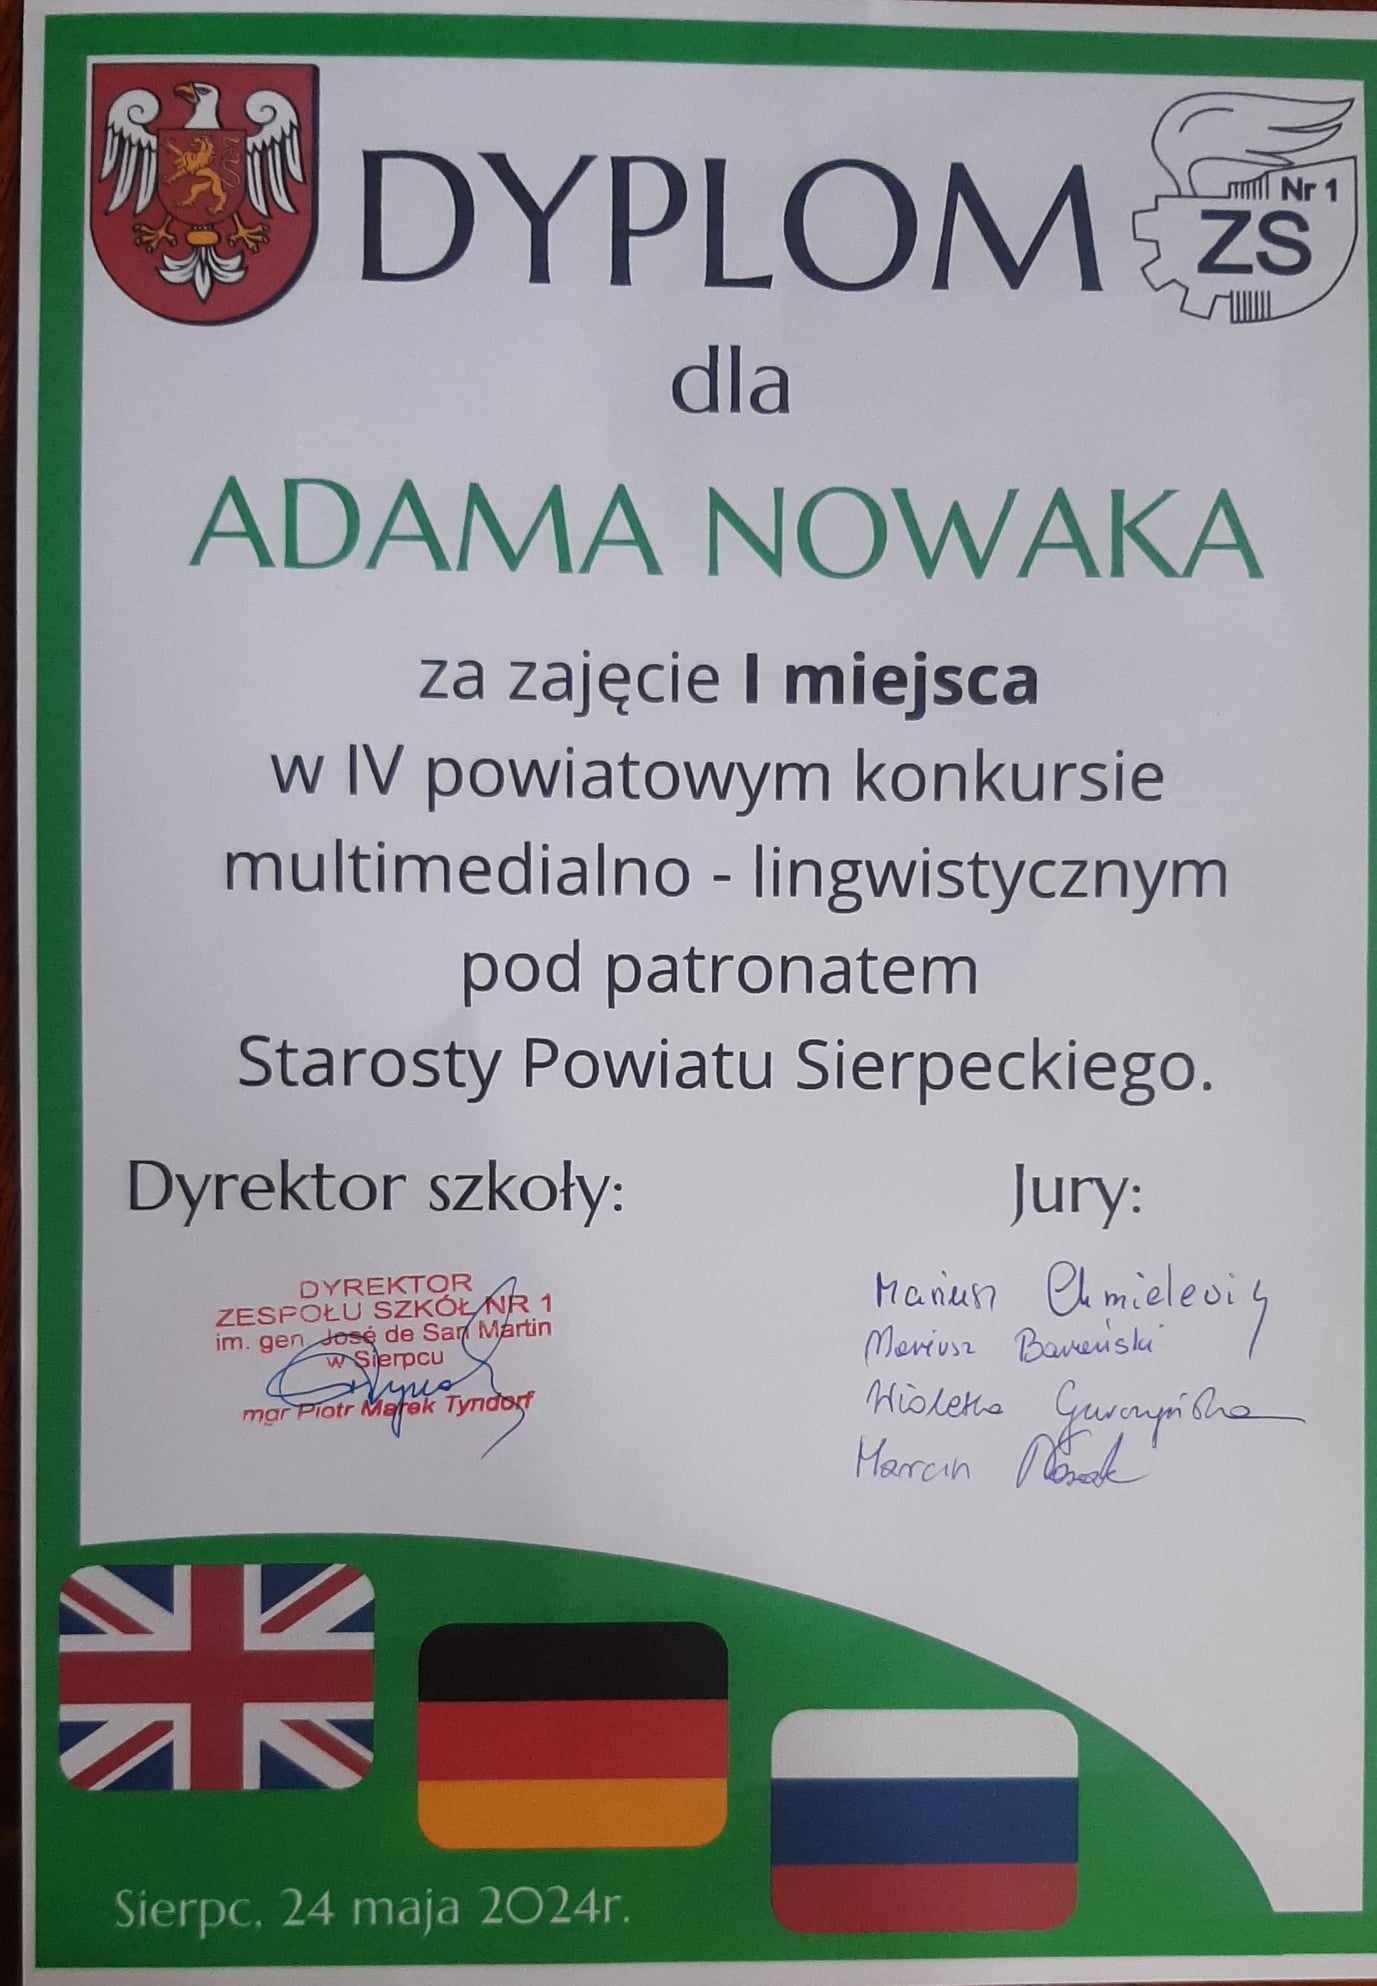 DYPLOM
Nr 1
ZS
dla
ADAMA NOWAKA
za zajęcie I miejsca
w IV powiatowym konkursie
multimedialno - lingwistycznym
pod patronatem
Starosty Powiatu Sierpeckiego.
Dyrektor szkoły:
DYREKTOR
ZESPOŁU SZKÓŁ NR 1
im. gen. José de San Martin
w Sierpcu
mgr Piotr Marek Tyndorf
Jury:
Mariusz
Mariusz
Wioletta
Marcin Nowak
Sierpc, 24 maja 2024r.